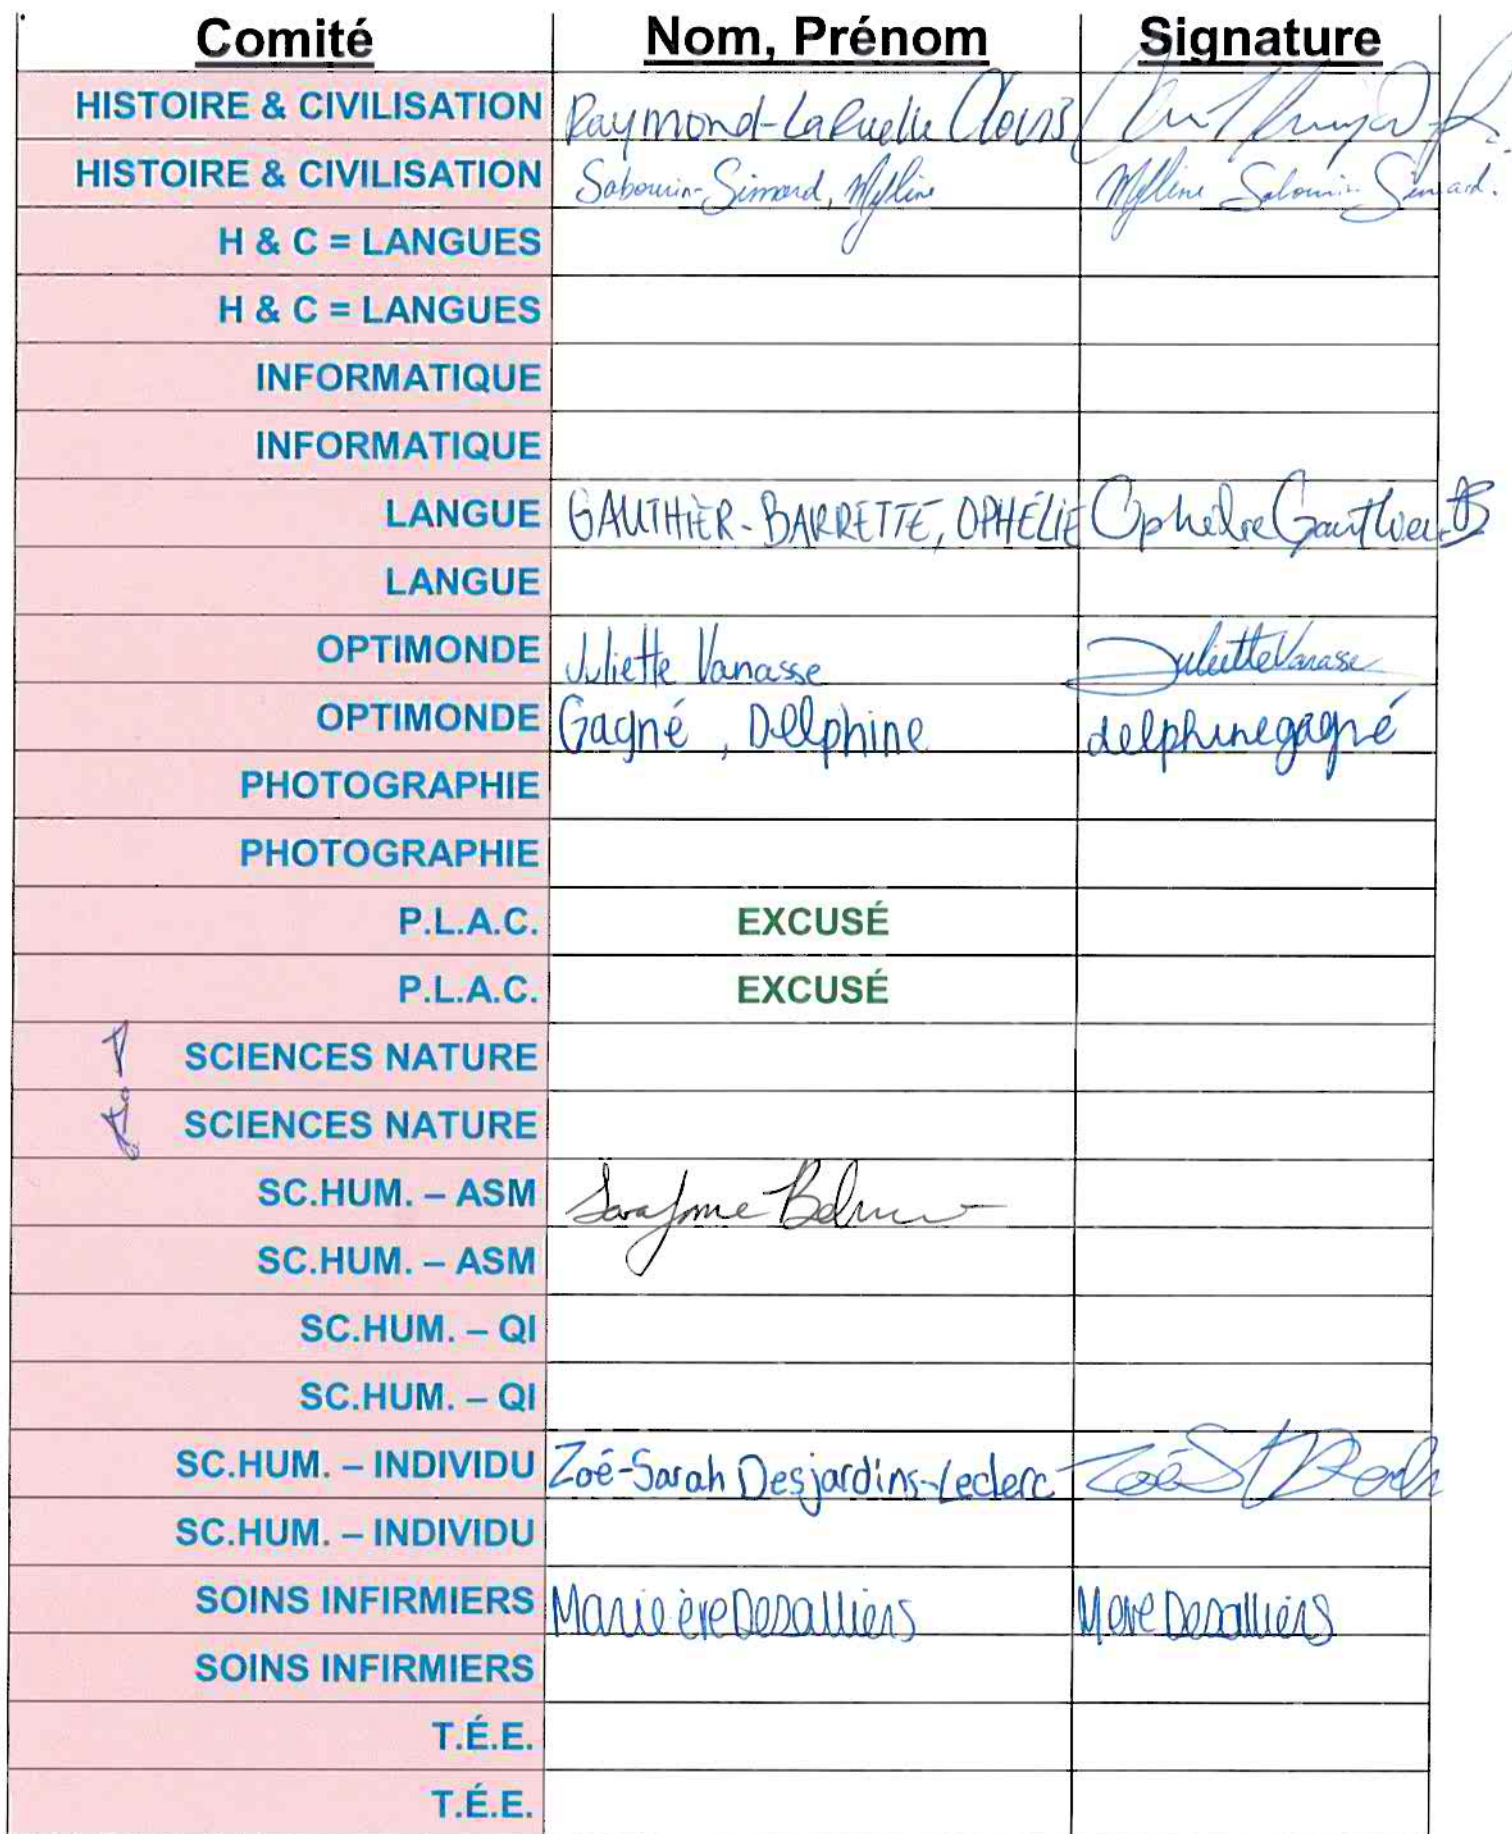 Comité Nom, Prénom Signature
HISTOIRE & CIVILISATION Raymond-LaRuelle Clovis
HISTOIRE & CIVILISATION Sabourin-Simard, Mylène Mylène Sabourin-Simard.
H & C = LANGUES
H & C = LANGUES
INFORMATIQUE
INFORMATIQUE
LANGUE GAUTHIER-BARRETTE, OPHÉLIE Ophélie Gauthier-B
LANGUE
OPTIMONDE Juliette Vanasse Juliette Vanasse
OPTIMONDE Gagné, Delphine delphine gagné
PHOTOGRAPHIE
PHOTOGRAPHIE
P.L.A.C. EXCUSÉ
P.L.A.C. EXCUSÉ
SCIENCES NATURE
SCIENCES NATURE
SC.HUM. – ASM
SC.HUM. – ASM
SC.HUM. – QI
SC.HUM. – QI
SC.HUM. – INDIVIDU Zoé-Sarah Desjardins-Leclerc Zoé
SC.HUM. – INDIVIDU
SOINS INFIRMIERS Marie ève Desalliers Meve Desalliers
SOINS INFIRMIERS
T.É.E.
T.É.E.